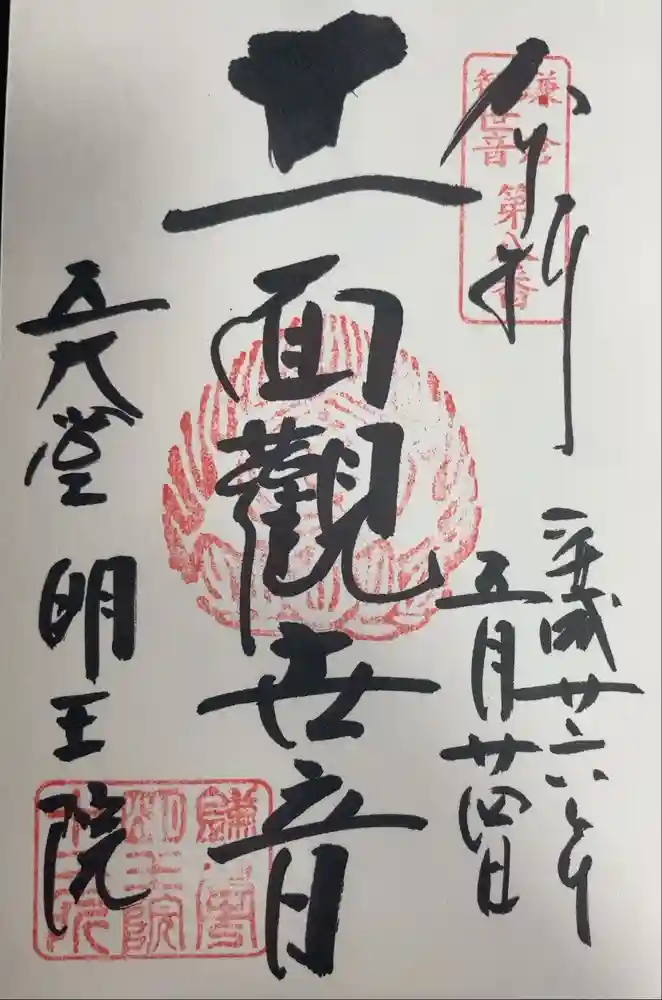 鎌倉
観世音
第八番
奉拝
平成廿六年
五月廿四日
十一面觀世音
五大堂 明王院
明王院